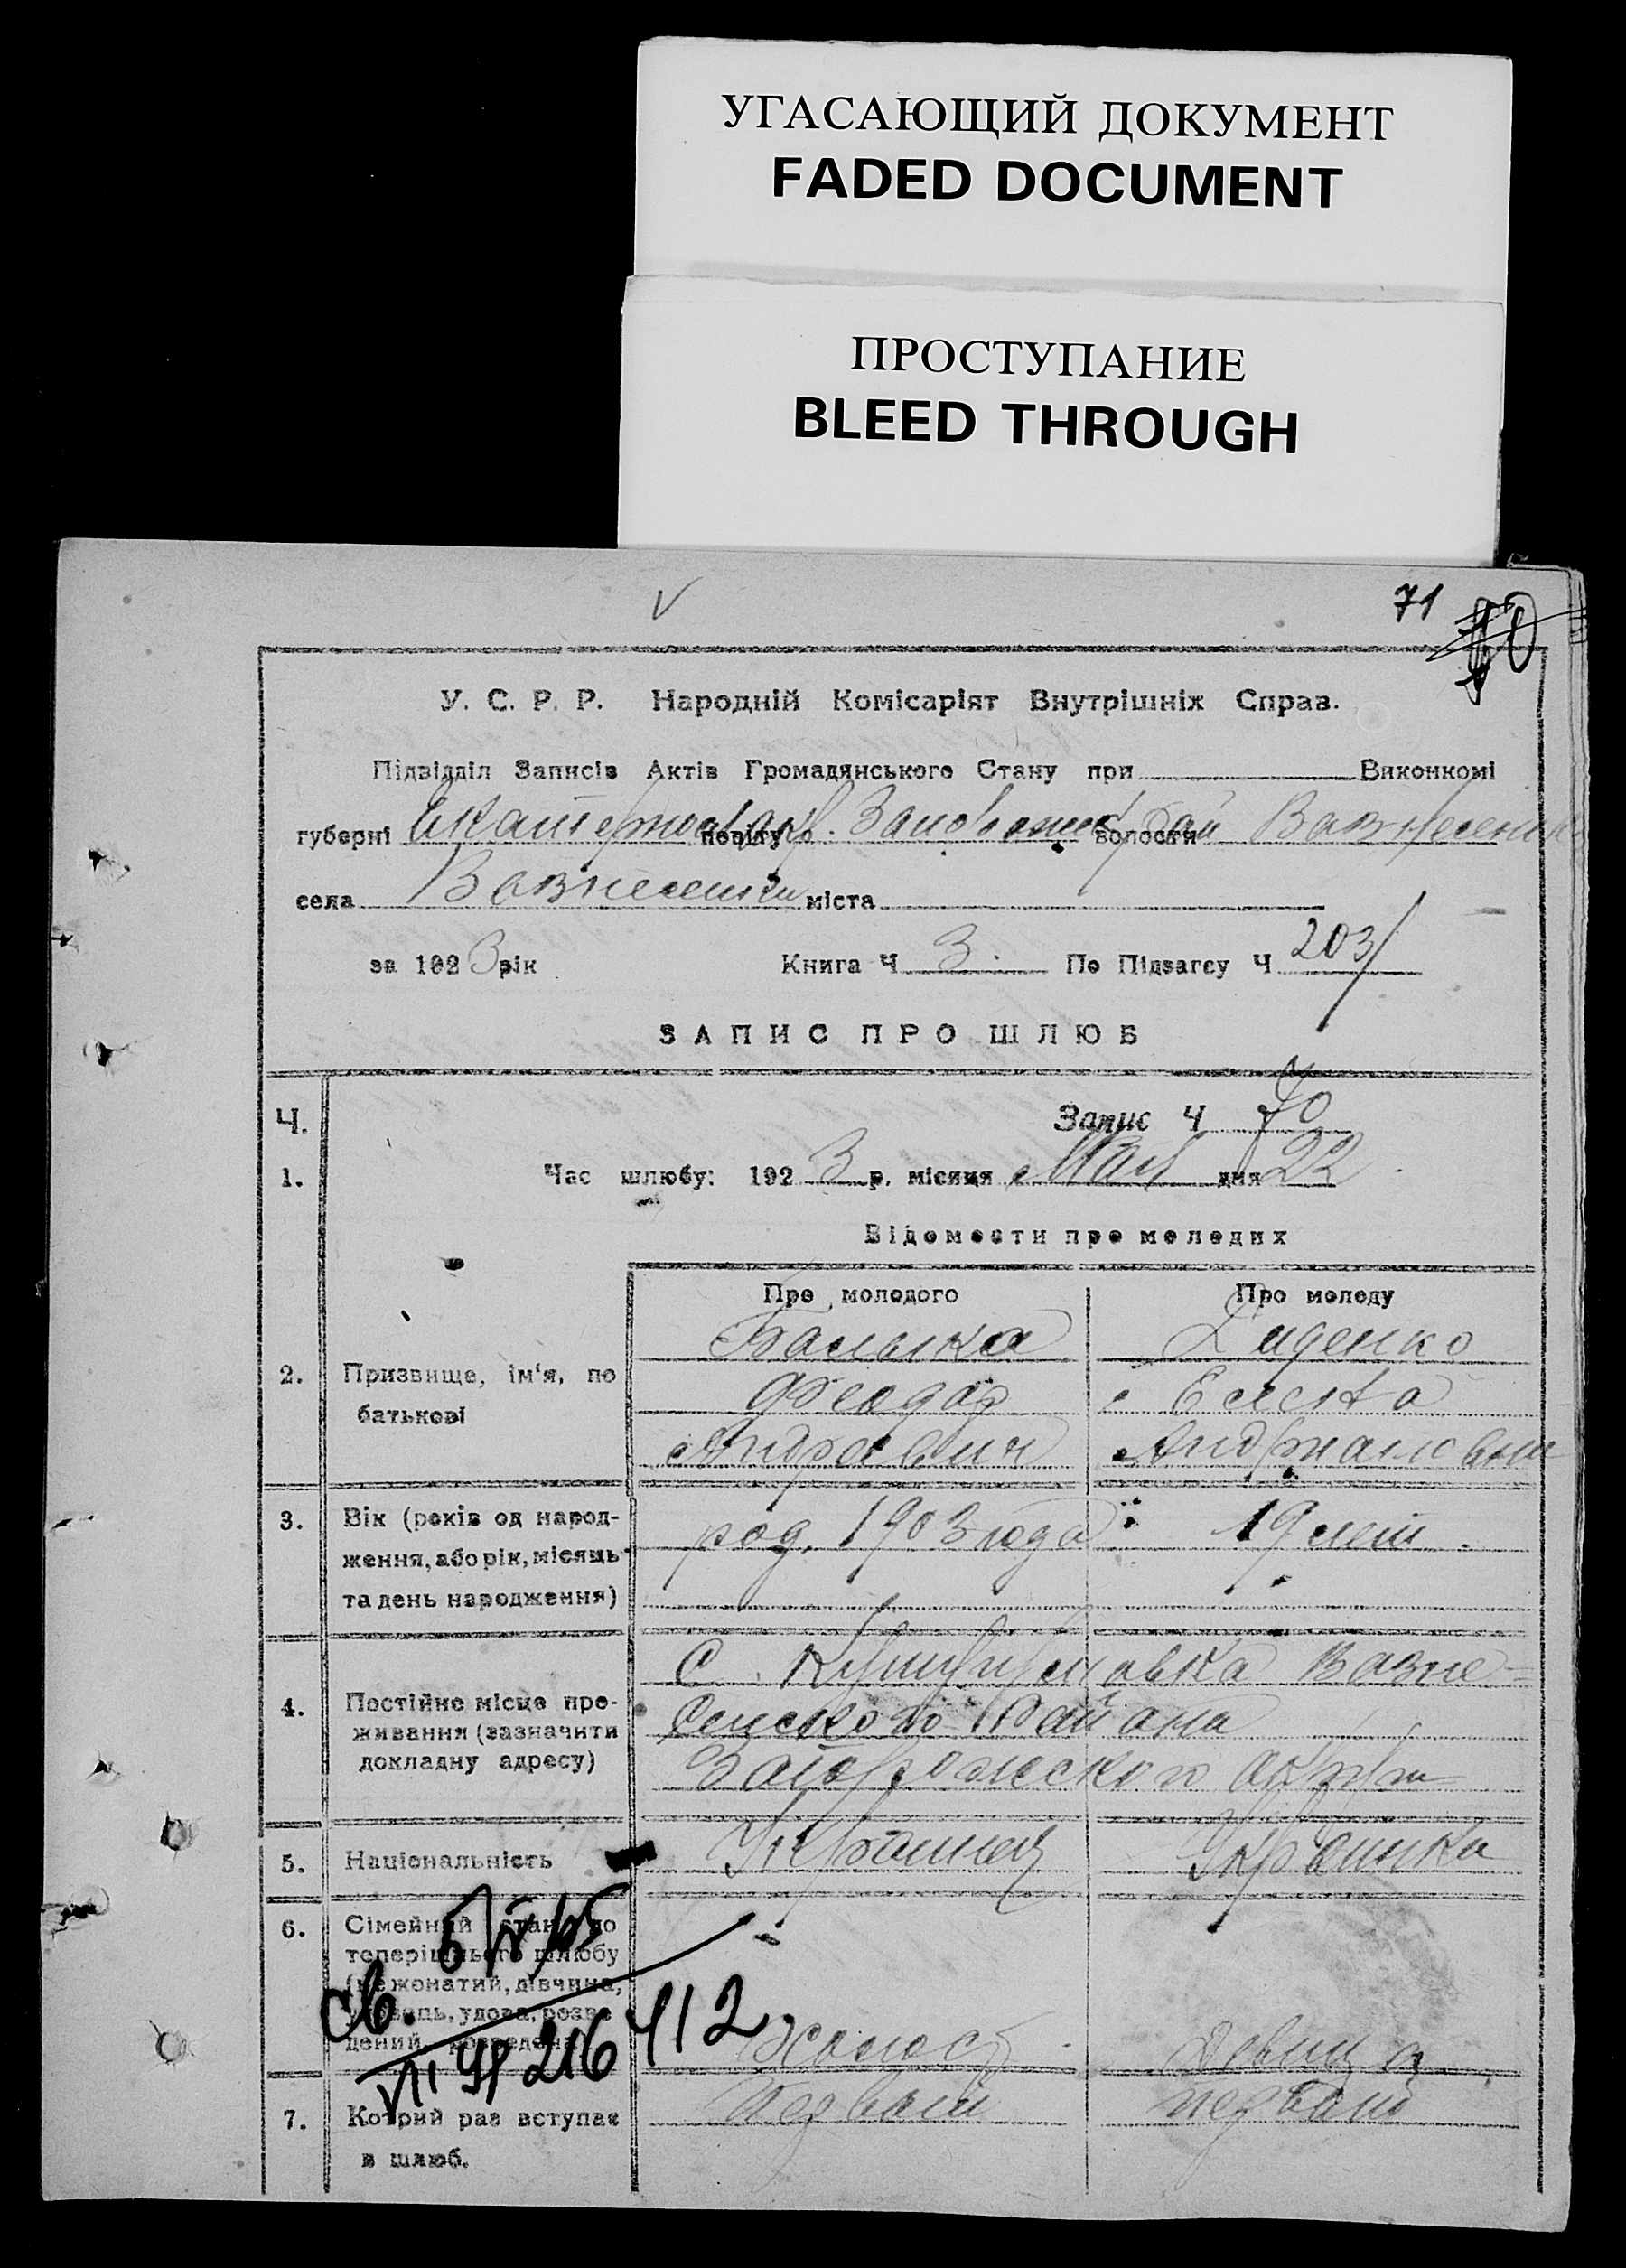 УГАСАЮЩИЙ ДОКУМЕНТ
FADED DOCUMENT
ПРОСТУПАНИЕ
BLEED THROUGH
71
70
У. С. Р. Р. Народній Комісаріят Внутрішніх Справ.
Підвідділ Записів Актів Громадянського Стану при Виконкомі
губерні повіту волости
села міста
за 1923 рік Книга Ч 3. По Підзагсу Ч 203/
ЗАПИС ПРО ШЛЮБ
Ч. Запис Ч 70
1. Час шлюбу: 1923 р. місяця Мая дня 22
Відомости про молодих
Про молодого Про молоду
Балыка Диденко
2. Призвище, ім'я, по Феодор Елена
батькові Андреевич
3. Вік (років од народ- род. 1903 года 19 лет.
ження, або рік, місяць
та день народження)
С. Кушугумовка Возне-
4. Постійне місце про- сенского Района
живання (зазначити Запорожского
докладну адресу)
5. Національність Украинец Украинка
6. Сімейний стан до
теперішнього шлюбу
(нежонатий, дівчина,
удівець, удова, розве-
дений, розведена) Холост Девица
св. 216 412
7. Котрий раз вступає Первый первый
в шлюб.